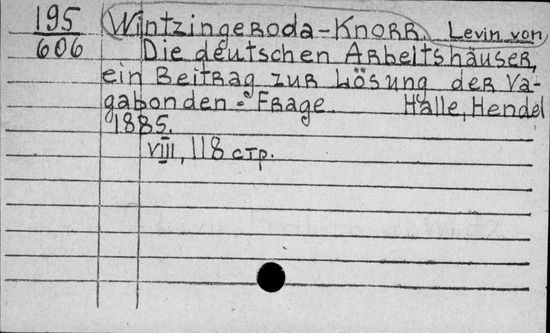 195
606
Wintzingeroda-Knorr, Levin von,
Die deutschen Arbeitshäuser,
ein Beitrag zur Lösung der Va-
gabonden-Frage. Halle, Hendel
1885.
VIII, 118 стр.